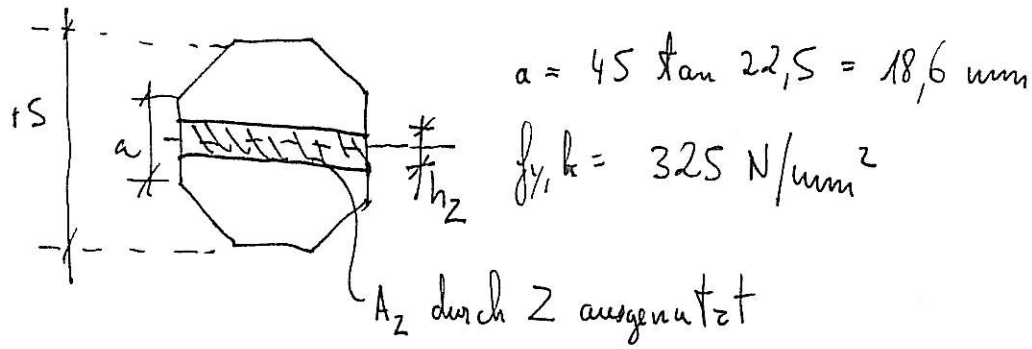 a = 45 tan 22,5 = 18,6 mm
a
fy,k = 325 N/mm²
h_z
A_z durch Z ausgenutzt